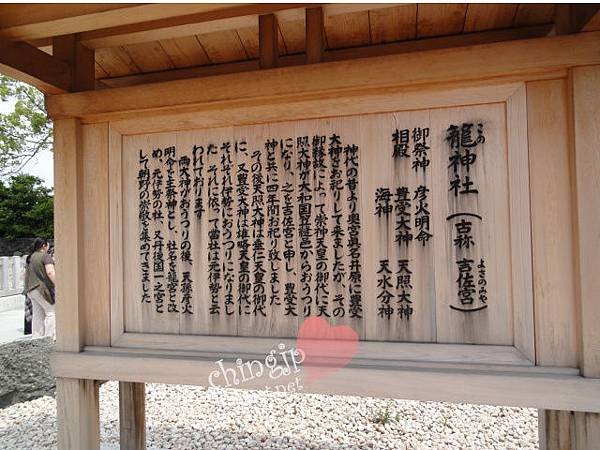 この
籠神社(古称 吉佐宮)
よさのみや
御祭神 彦火明命
相殿 豊受大神 天照大神
海神 天水分神
神代の昔より奥宮眞名井原に豊受
大神をお祀りして来ましたが、その
御縁故によって崇神天皇の御代に天
照大神が大和国笠縫邑からおうつり
になり、之を吉佐宮と申し、豊受大
神と共に四年間お祀り致しました
その後天照大神は垂仁天皇の御代
に、又豊受大神は雄略天皇の御代に
それぞれ伊勢におうつりになりまし
た それに依って當社は元伊勢と云
われております
両大神がおうつりの後、天孫彦火
明命を主祭神とし、社名を籠宮と改
め、元伊勢の社、又丹後国一之宮と
して朝野の崇敬を集めてきました
chingjp